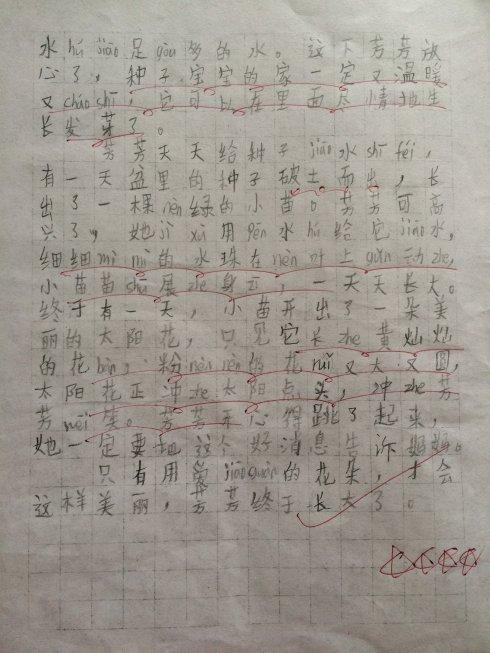 水hú jiāo足gòu多的水。这下芳芳放
心了，种子宝宝的家一定又温暖
又cháo shī，它可以在里面尽情地生
长发芽了。
芳芳天天给种子jiāo水shī féi，
有一天盆里的种子破土而出，长
出了一棵nèn绿的小苗。芳芳可高
兴了，她jì xù用pēn水hú给它jiāo水，
细细mì mì的水珠在nèn叶上gǔn动zhe，
小苗苗shū展zhe身子，一天天长大。
终于有一天，小苗开出了一朵美
丽的太阳花，只见它长zhe黄灿灿
的花bàn，粉nèn nèn的花ruǐ又大又圆，
太阳花正冲zhe太阳点头，冲zhe芳
芳wēi笑。芳芳开心得跳了起来，
她一定要把这个好消息告诉妈妈。
只有用爱jiāo guàn的花朵，才会
这样美丽，芳芳终于长大了。